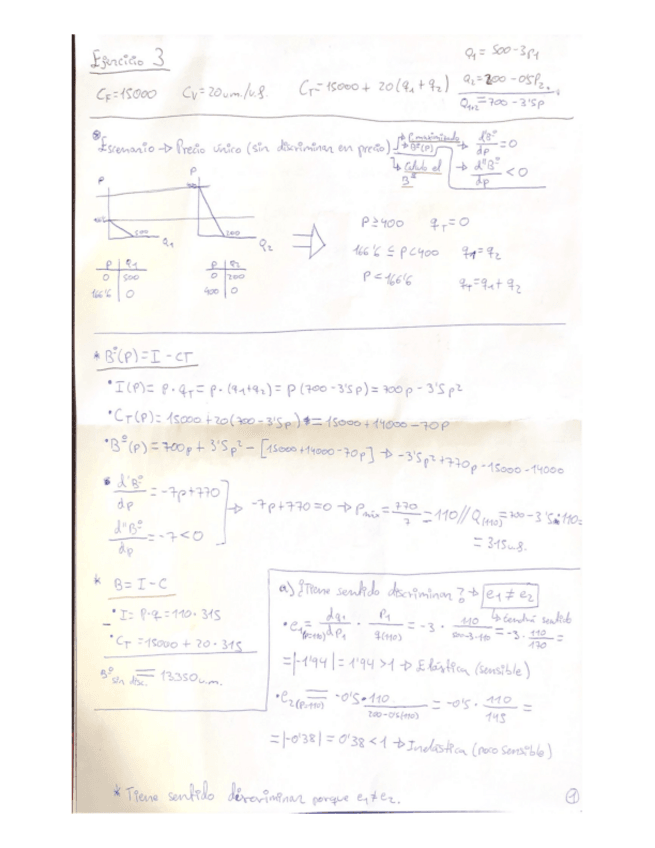 Ejercicio 3
q1 = 500-3p1
CF=15000 CV=20u.m./u.f. CT=15000+20(q1+q2) q2=200-0'5P2
Q1+2=700-3'5p
Escenario → Precio único (sin discriminar en precio)
→ B°(P) → d'B°/dp = 0
→ Calculo el B° → d''B°/dp < 0
P P
200 200
Q1 Q2
P | q1 P | q2
0 | 500 0 | 200
166'6 | 0 400 | 0
P≥400 qT=0
166'6 ≤ P<400 qT=q2
P<166'6 qT=q1+q2
* B°(P)=I-CT
• I(P)= P·qT=P·(q1+q2)=P(700-3'5P)=700p-3'5p²
• CT(P)=15000+20(700-3'5p)=15000+14000-70P
• B°(P)=700p+3'5p²-[15000+14000-70p] → -3'5p²+770p-15000-14000
• d'B°/dp = -7p+770
d''B°/dp = -7<0
→ -7p+770=0 → Pmáx=770/7=110 // Q(110)=700-3'5·110=
= 315u.f.
* B=I-C
• I= P·q=110·315
• CT=15000+20·315
B° sin disc. = 13350u.m.
a) ¿Tiene sentido discriminar? → e1≠e2
↳ tendrá sentido
• e1(P=110) = dq1/dP1 · P1/q(110) = -3 · 110/500-3·110 = -3 · 110/170 =
=|-1'94|=1'94>1 → Elástica (sensible)
• e2(P=110) = -0'5·110/200-0'5(110) = -0'5 · 110/145 =
=|-0'38|=0'38<1 → Inelástica (poco sensible)
* Tiene sentido discriminar porque e1≠e2.
1